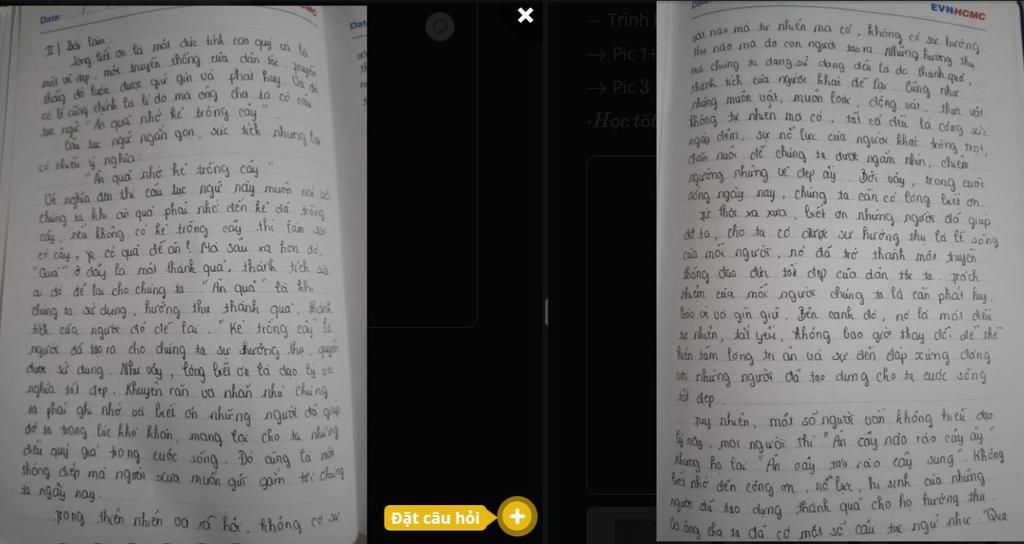 Date:
HCMC
II | Bài làm
lòng biết ơn là một đức tính cao quý và là
một vẻ đẹp, một truyền thống của dân tộc, truyền
thống đó luôn được giữ gìn và phát huy. Và đó
có lẽ cũng chính là lí do mà ông cha ta có câu
tục ngữ "Ăn quả nhớ kẻ trồng cây"
Câu tục ngữ ngắn gọn, súc tích nhưng lại
có nhiều ý nghĩa:
"Ăn quả nhớ kẻ trồng cây"
Về nghĩa đen thì câu tục ngữ này muốn nói với
chúng ta khi ăn quả phải nhớ đến kẻ đã trồng
cây, nếu không có kẻ trồng cây thì làm sao
có cây, có quả để ăn? Mà sâu xa hơn đó.
"Quả" ở đây là một thành quả, thành tích
ai đó để lại cho chúng ta "Ăn quả" là khi
chúng ta sử dụng, hưởng thụ thành quả, thành
tích của người đó để lại. "Kẻ trồng cây" là
người đã tạo ra cho chúng ta sự hưởng thụ, quyền
được sử dụng. Như vậy, lòng biết ơn là đạo lý
nghĩa tốt đẹp. Khuyên răn và nhắn nhủ chúng
ta phải ghi nhớ và biết ơn những người đã giúp
đỡ ta trong lúc khó khăn, mang lại cho ta những
điều quý giá trong cuộc sống. Đó cũng là
thông điệp mà người xưa muốn gửi gắm tới chúng
ta ngày nay.
Trong thiên nhiên và xã hội, không có sự
Dat
— Trình
→ Pic 1+
→ Pic 3
·Học tốt
Đặt câu hỏi
Date
EVNHCMC
vật nào mà tự nhiên mà có, không có sự hưởng
thụ nào mà do con người tạo ra. Những hưởng thụ
mà chúng ta đang sử dụng đều là do thành quả,
thành tích của người khác để lại. Cũng như
những muôn vật, muôn loài, động vật, thực vật
không tự nhiên mà có, tất cả đều là công sức
ngày đêm, sự nỗ lực của người khác trồng trọt,
chăn nuôi để chúng ta được ngắm nhìn, chiêm
ngưỡng những vẻ đẹp ấy. Bởi vậy, trong cuộc
sống ngày nay, chúng ta cần có lòng biết ơn.
Từ thời xa xưa, biết ơn những người đã giúp
đỡ ta, cho ta có được sự hưởng thụ là lẽ sống
của mỗi người, nó đã trở thành một truyền
thống đạo đức tốt đẹp của dân tộc ta. Trách
nhiệm của mỗi người chúng ta là cần phát huy.
Bảo vệ và gìn giữ. Bên cạnh đó, nó là một điều
tự nhiên, tất yếu, không bao giờ thay đổi để thể
hiện tấm lòng tri ân và sự đền đáp xứng đáng
với những người đã tạo dựng cho ta cuộc sống
tốt đẹp.
Tuy nhiên, một số người vẫn không hiểu đạo
lý này, mọi người thì "Ăn cây nào rào cây ấy"
nhưng họ lại "Ăn cây táo rào cây sung". Không
biết nhớ đến công ơn, nỗ lực, hi sinh của những
người đã tạo dựng thành quả cho họ hưởng thụ.
ông cha ta đã có một số câu tục ngữ như: "Qua